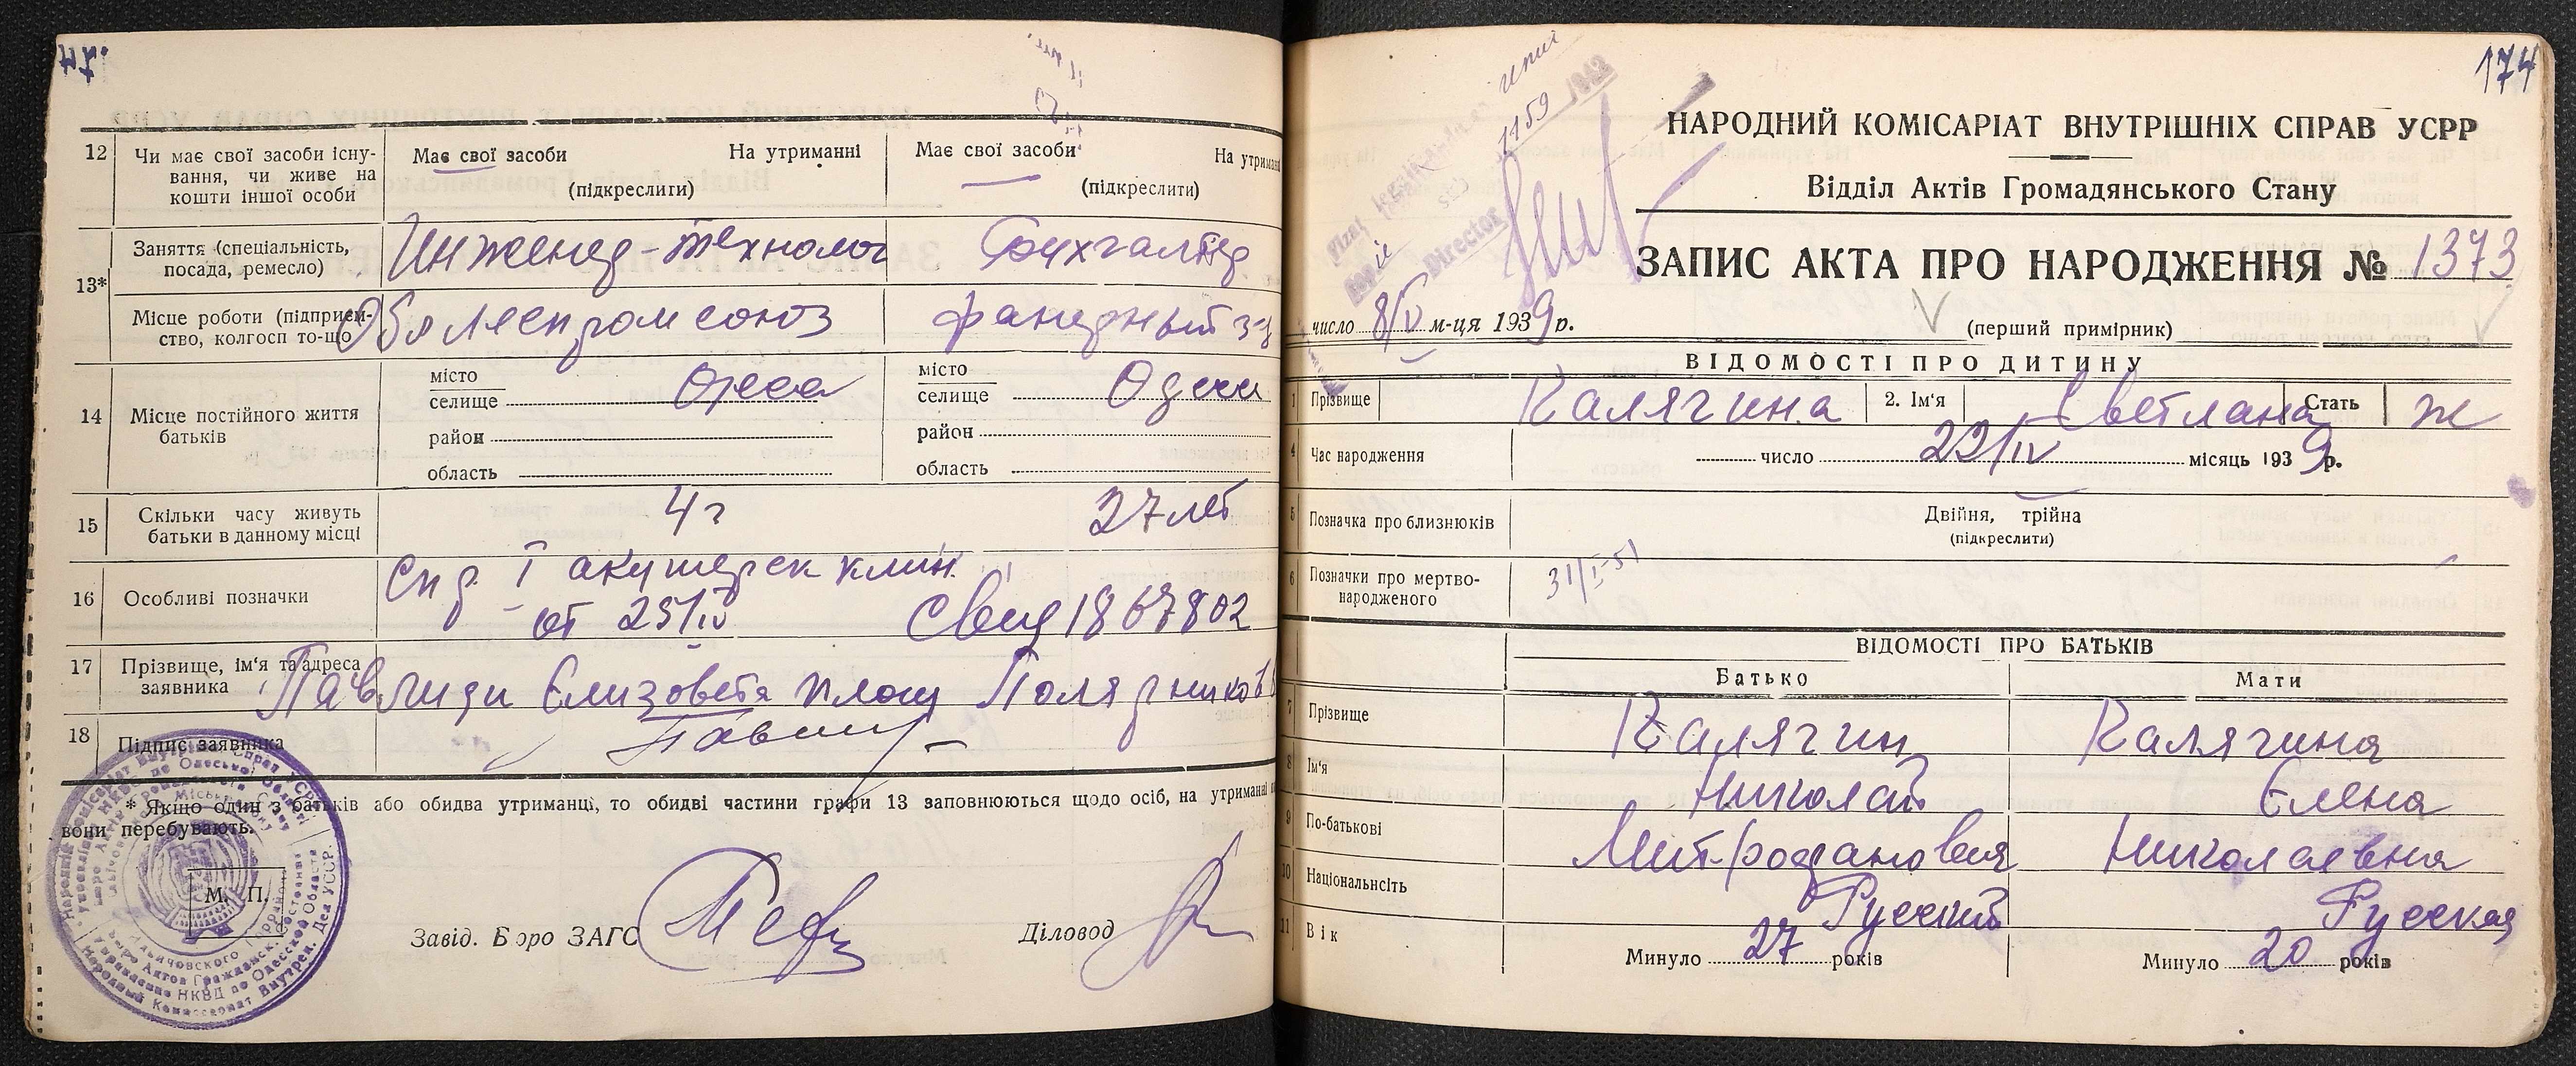 12
Чи має свої засоби існу-
вання, чи живе на
кошти іншої особи
Має свої засоби На утриманні
(підкреслити)
Має свої засоби На утриманні
(підкреслити)
13*
Заняття (спеціальність,
посада, ремесло)
Инженер-технолог
Бухгалтер
Місце роботи (підприєм-
ство, колгосп то-що
Облместпромсоюз
фанерный з-д
14
Місце постійного життя
батьків
місто
селище Одесса
район
область
місто
селище Одесса
район
область
15
Скільки часу живуть
батьки в данному місці
4 г
27 лет
16
Особливі позначки
Спр. I акушерск клин.
от 25/IV Свид 1867802
17
Прізвище, ім'я та адреса
заявника
Елизовета площ
18
Підпис заявника
* Якщо один з батьків або обидва утриманці, то обидві частини графи 13 заповнюються щодо осіб, на утриманні
вони перебувають.
М. П.
Завід. Бюро ЗАГС
Діловод
174
НАРОДНИЙ КОМІСАРІАТ ВНУТРІШНІХ СПРАВ УСРР
Відділ Актів Громадянського Стану
ЗАПИС АКТА ПРО НАРОДЖЕННЯ № 1373
1159 1942
Director
число 8/V м-ця 1939 р.
(перший примірник)
ВІДОМОСТІ ПРО ДИТИНУ
1 Прізвище Калягина 2. Ім'я Светлана Стать ж
4 Час народження число 22/IV місяць 1939 р.
5 Позначка про близнюків Двійня, трійна
(підкреслити)
6 Позначки про мертво-
народженого
31/I-51
ВІДОМОСТІ ПРО БАТЬКІВ
Батько Мати
7 Прізвище Калягин Калягина
8 Ім'я Николай Елена
9 По-батькові Митрофанович Николаевна
10 Національнсіть Русский Русская
11 Вік Минуло 27 років Минуло 20 років